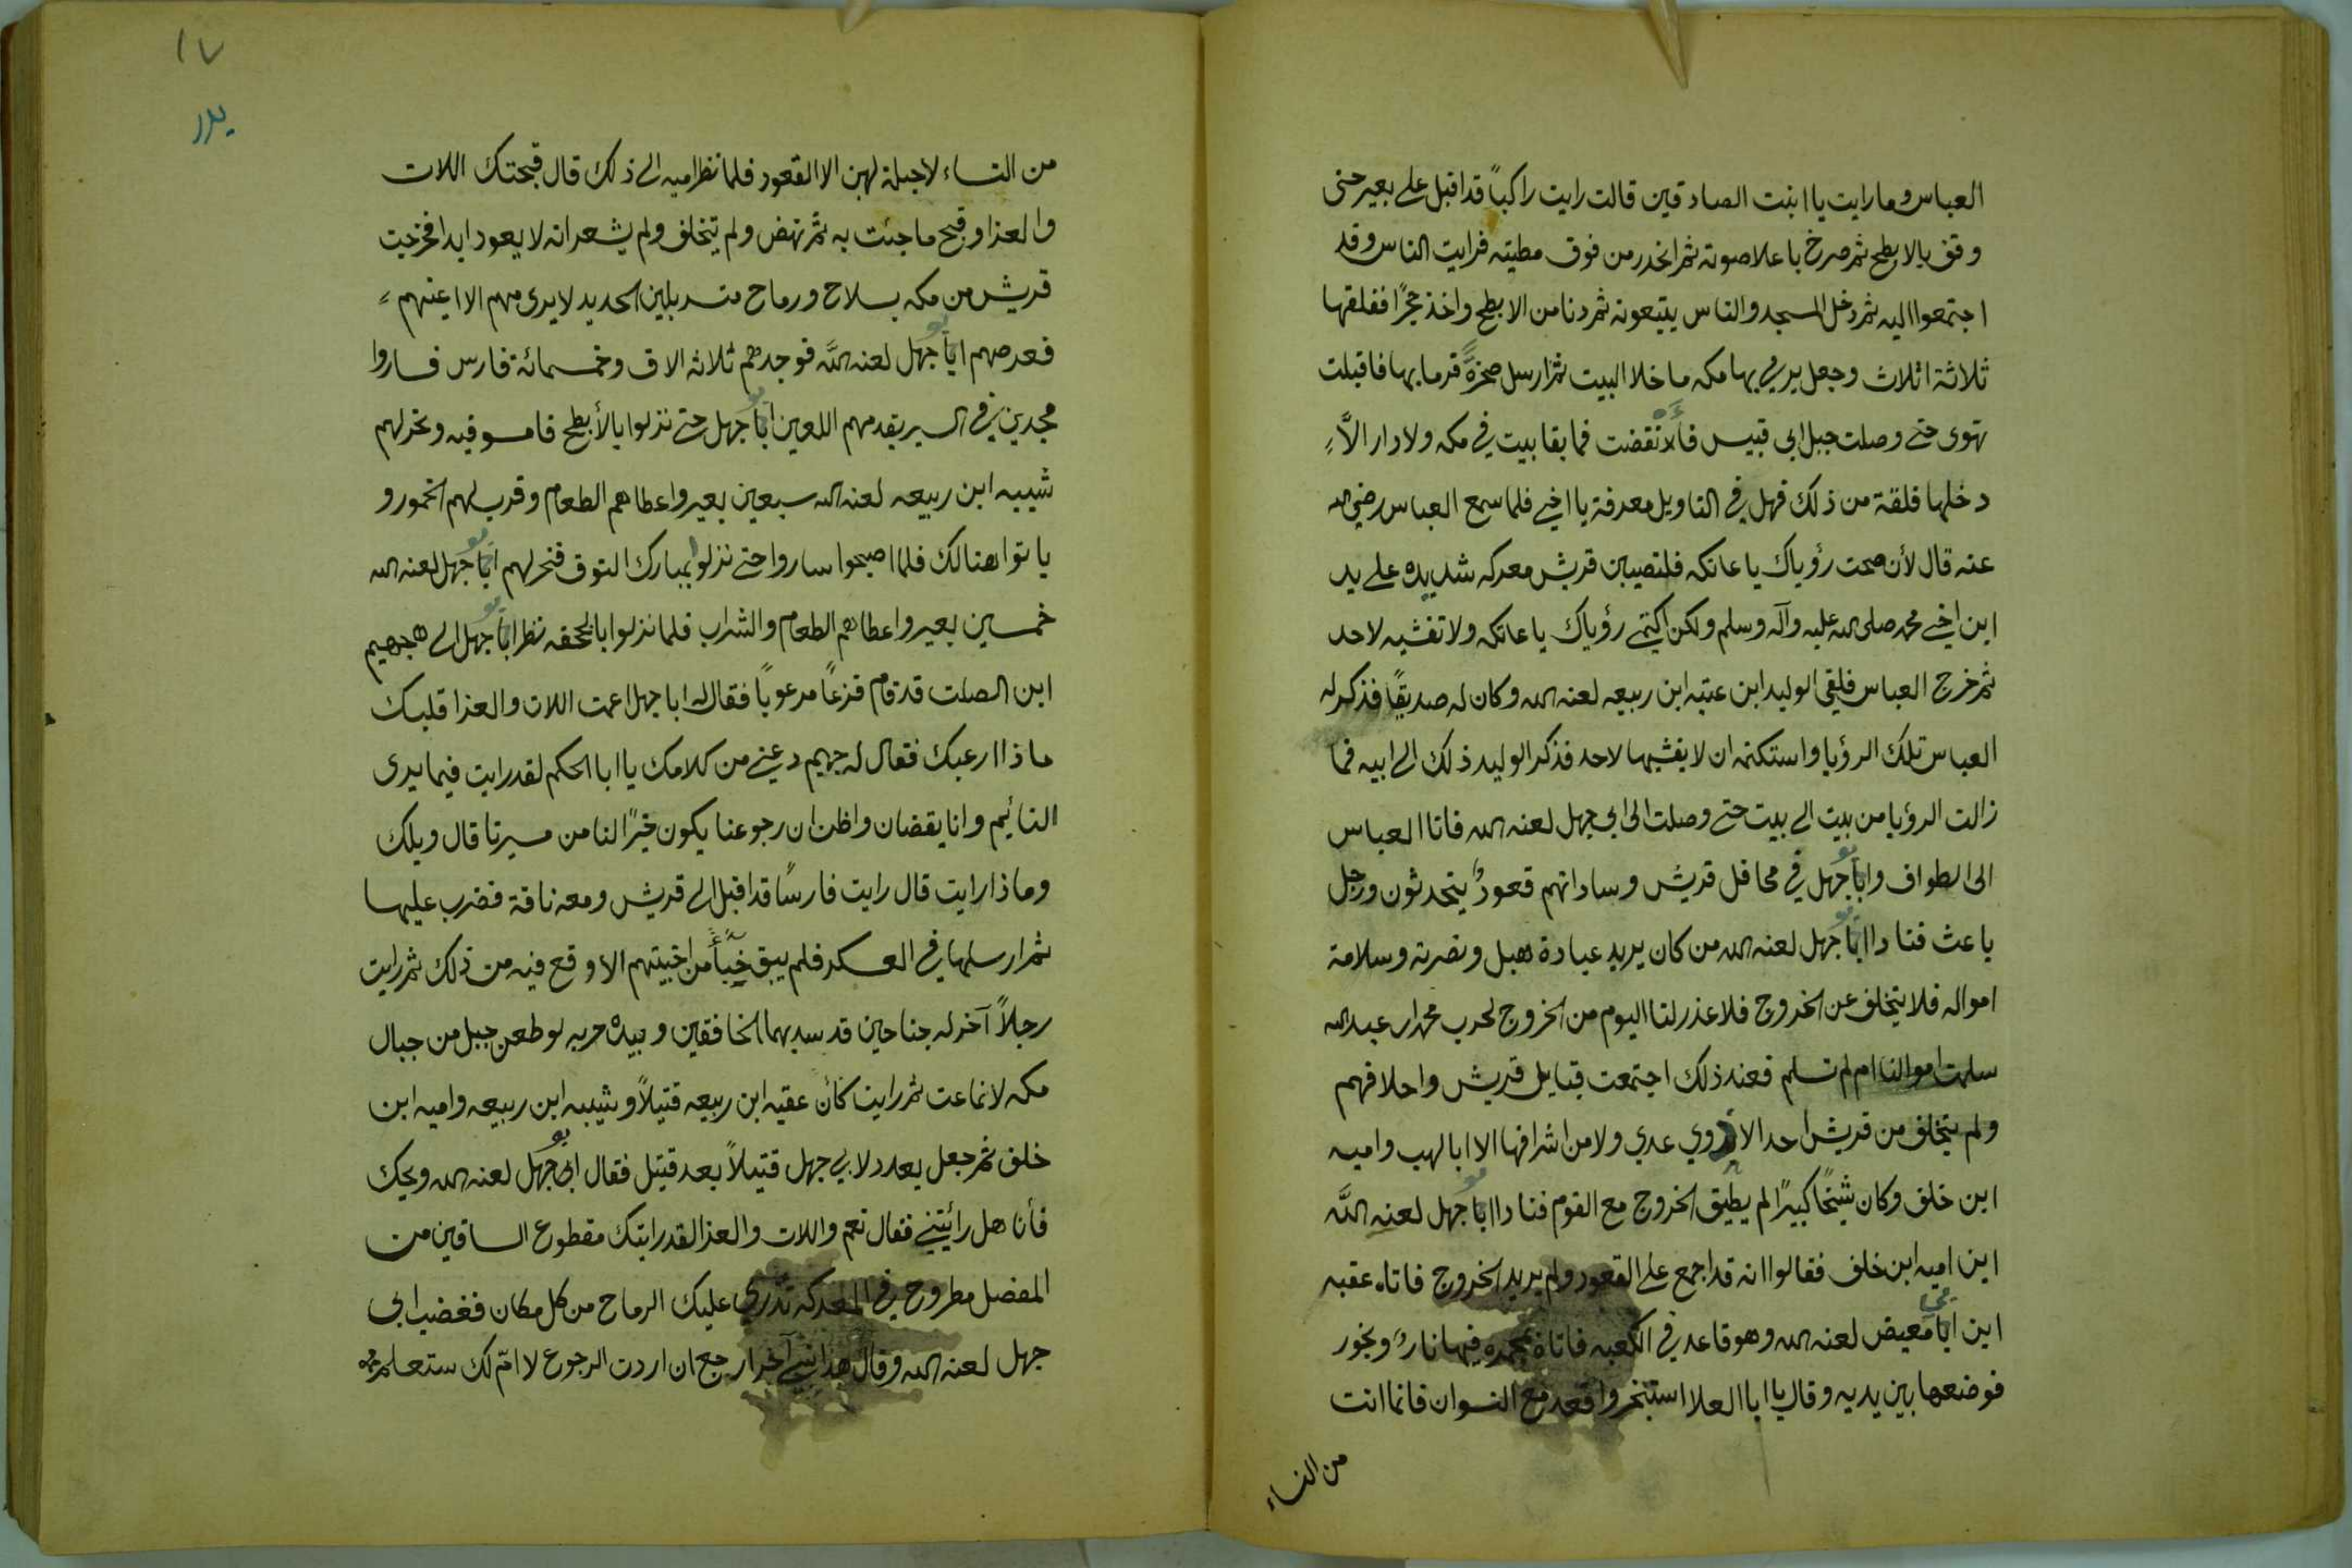 العباس وما رايت يا ابنت الصادقين قالت رايت راكباً قد اقبل على بعير حتى
وقف بالابطح ثم صرخ باعلا صوته ثم انحدر من فوق مطيته فرايت الناس وقد
اجتمعوا اليه ثم دخل المسجد والناس يتبعونه ثم دنا من الابطح واخذ حجرًا ففلقها
ثلاثة اثلاث وجعل يرمي بها مكه ما خلا البيت ثم ارسل صخرةً فرما بها فاقبلت
تهوى حتى وصلت جبل ابى قبيس فانقضت فما بقا بيت في مكه ولا دار الاَّ
دخلها فلقة من ذلك فهل في التاويل معرفة يا اخي فلما سمع العباس رضي الله
عنه قال لأن صحت رؤياك يا عاتكه فلتصيبن قريش معركه شديده على يد
ابن اخي محمد صلى الله عليه وآله وسلم ولكن اكتمي رؤياك يا عاتكه ولا تفشيه لاحد
ثم خرج العباس فلقي الوليد ابن عتبه ابن ربيعه لعنه الله وكان له صديقًا فذكر له
العباس تلك الرؤيا واستكتمه ان لا يفشيها لاحد فذكر الوليد ذلك الى ابيه فما
زالت الرؤيا من بيت الى بيت حتى وصلت الى ابي جهل لعنه الله فاتا العباس
الى الطواف وابا جهل في محافل قريش وساداتهم قعودٌ يتحدثون ورجل
باعث فنادا ابا جهل لعنه الله من كان يريد عبادة هبل ونصرته وسلامة
امواله فلا يتخلف عن الخروج فلا عذر لنا اليوم من الخروج لحرب محمد ابن عبد الله
سلمت اموالنا ام لم تسلم فعند ذلك اجتمعت قبايل قريش واحلافهم
ولم يتخلف من قريش احد الا ذوي عدي ولا من اشرافها الا ابا لهب واميه
ابن خلف وكان شيخًا كبيرًا لم يطيق الخروج مع القوم فنادا ابا جهل لعنه اللَّه
اين اميه ابن خلف فقالوا انه قد اجمع على القعود ولم يريد الخروج فاتاه عقبه
ابن ابا معيض لعنه الله وهو قاعد في الكعبه فاتاه بمجمره فيها نارٌ وبخور
فوضعها بين يديه وقال يا ابا العلا استبخر واقعد مع النسوان فانما انت
من النساء
١٧
بدر
من النساء لا حيلة لهن الا القعود فلما نظر اميه الى ذلك قال قبحتك اللات
والعزا وقبح ما جئت به ثم نهض ولم يتخلف ولم يشعر انه لا يعود ابدا فخرجت
قريش من مكه بسلاح ورماح متسربلين الحديد لا يرى منهم الا اعينهم
فعرضهم ابا جهل لعنه اللَّه فوجدهم ثلاثه الاف وخمسمائة فارس فساروا
مجدين في السير يقدمهم اللعين ابا جهل حتى نزلوا بالأبطح فامسو فيه ونحر لهم
شيبه ابن ربيعه لعنه الله سبعين بعير واعطاهم الطعام وقرب لهم الخمور و
باتوا هنالك فلما اصبحوا ساروا حتى نزلوا بمبارك النوق فنحر لهم ابا جهل لعنه الله
خمسين بعير واعطاهم الطعام والشراب فلما نزلوا بالجحفه نظر ابا جهل الى جهيم
ابن الصلت قد قام فزعاً مرعوباً فقال له ابا جهل اعمت اللات والعزا قلبك
ماذا ارعبك فقال له جهيم دعني من كلامك يا ابا الحكم لقد رايت فيما يرى
النائيم وانا يقضان واظن ان رجوعنا يكون خيرًا لنا من مسيرنا قال ويلك
وماذا رايت قال رايت فارسًا قد اقبل الى قريش ومعه ناقة فضرب عليها
ثم ارسلها في العسكر فلم يبق خبأً من اخبيتهم الا وقع فيه من ذلك ثم رايت
رجلاً آخر له جناحين قد سد بهما الخافقين وبيده حربه لو طعن جبل من جبال
مكه لانماعت ثم رايت كأن عقبه ابن ربيعه قتيلاً وشيبه ابن ربيعه واميه ابن
خلف ثم جعل يعدد لابي جهل قتيلاً بعد قتيل فقال ابى جهل لعنه الله ويحك
فأنا هل رأيتني فقال نعم واللات والعزا لقد رايتك مقطوع الساقين من
المفصل مطروح في المعركه تذري عليك الرماح من كل مكان فغضب ابى
جهل لعنه الله وقال هذا نبي آخر ارجع ان اردت الرجوع لا امّ لك ستعلم